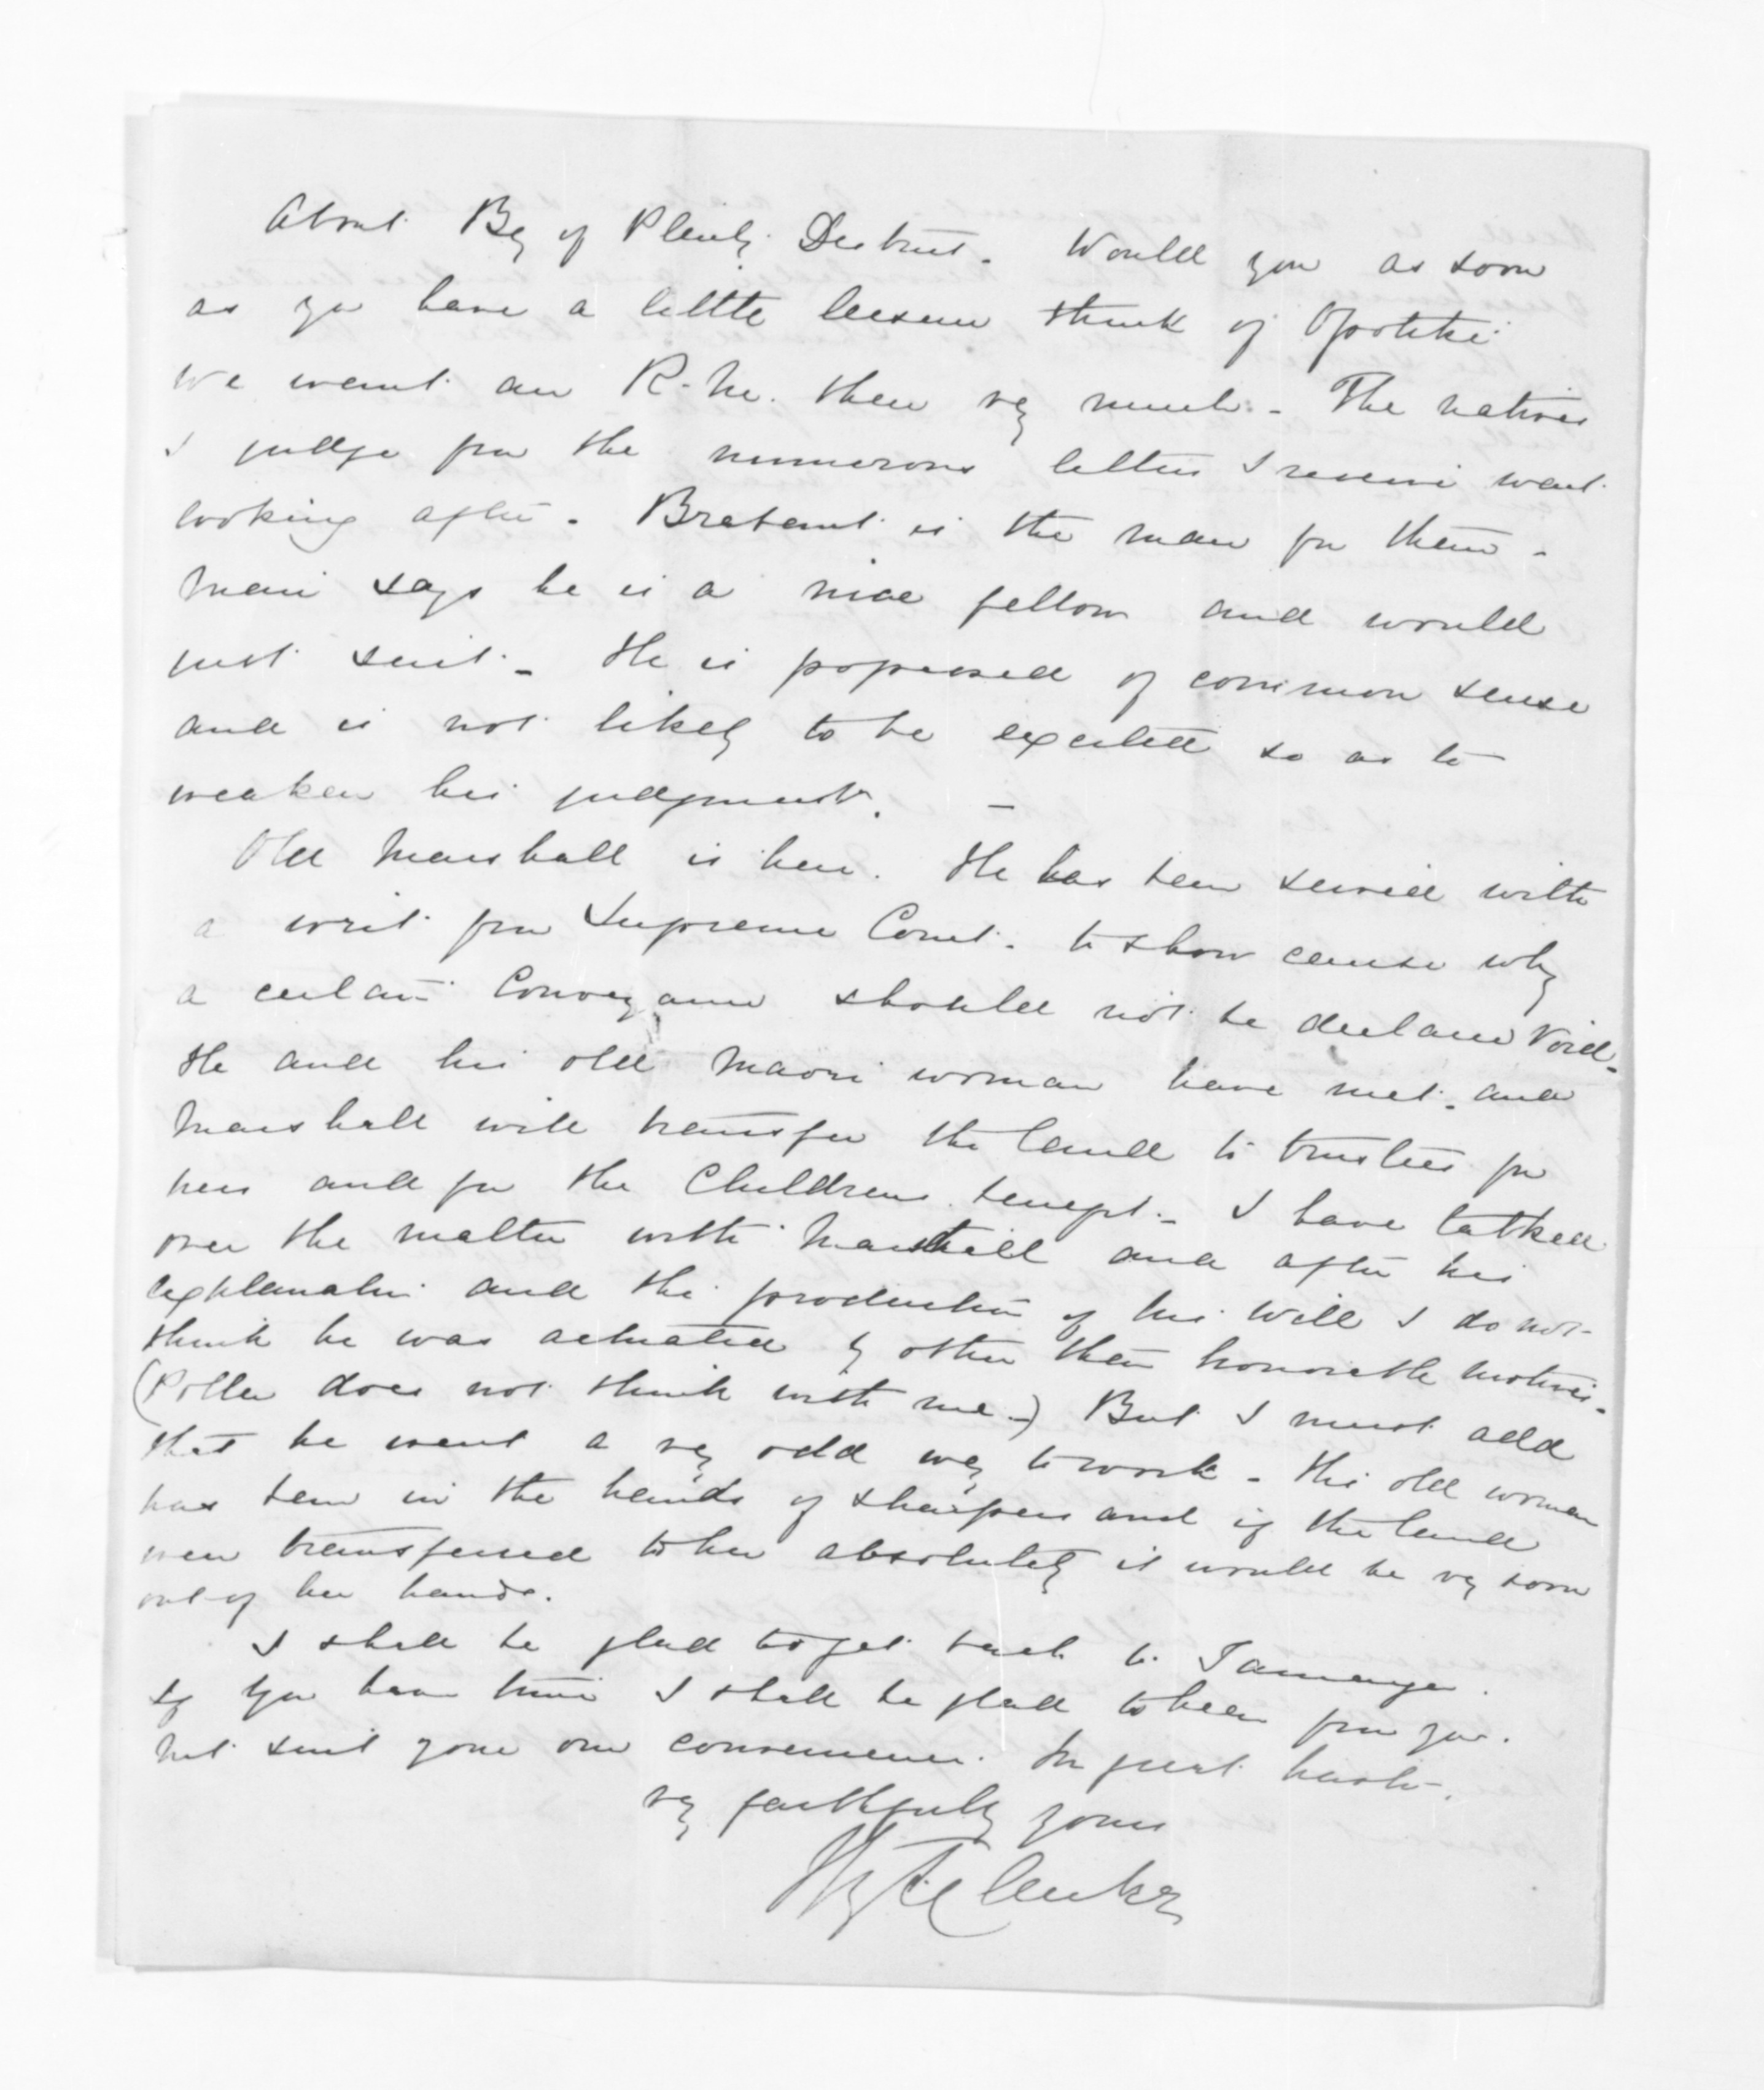 About Bay of Plenty District. Would you as soon
as you have a little leisure think of Opotiki
We want an R.M. there very much - The natives
I judge from the numerous letters I receive want
looking after. Brabant is the man for them -
Mair says he is a nice fellow and would
just suit - He is possessed of common sense
and is not likely to be excited so as to
weaken his judgment. -
Old Marshall is here. He has been served with
a writ from Supreme Court. to show cause why
a certain Conveyance should not be declared void -
He and his old Maori woman have met. and
Marshall will transfer the land to trustees for
hers and for the Childrens benefit - I have talked
over the matter with Marshall and after his
explanation and the production of his will I do not
think he was actuated by other than honorable motives -
(Poller does not think with me -) But I must add
that he went a very odd way to work - This old woman
has been in the hands of sharpers and if the land
were transferred to her absolutely it would be very soon
out of her hands.
I shall be glad to get back to Tauranga.
If you have time I shall be glad to hear from you.
but suit your own convenience. In great haste.
very faithfully yours
H T Clarke